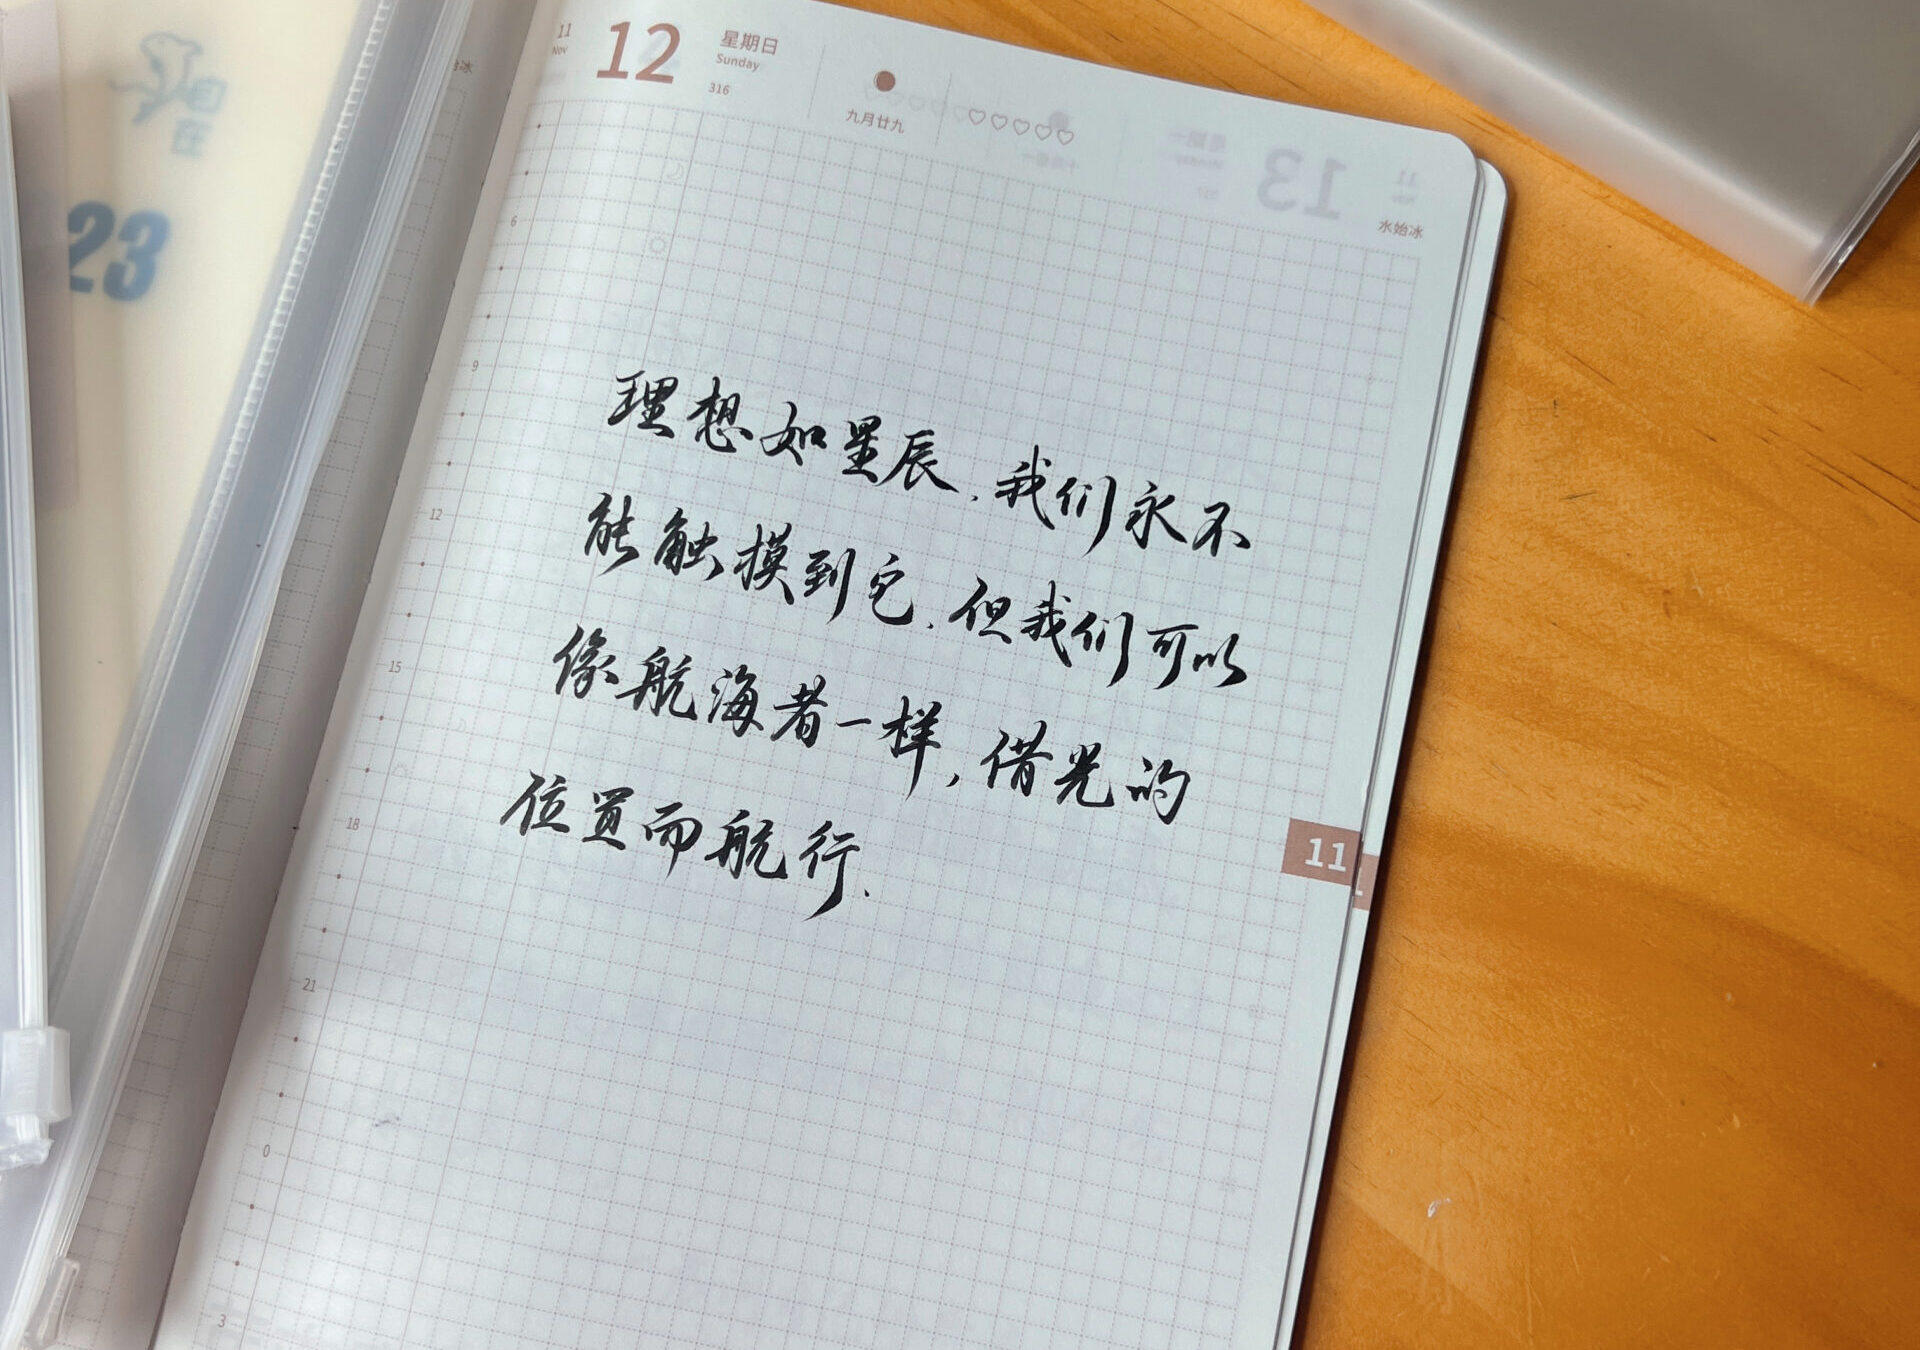 11
Nov
12
星期日
Sunday
316
九月廿九
水始冰
自在
23
6
9
理想如星辰，我们永不
能触摸到它，但我们可以
像航海者一样，借光的
位置而航行.
12
15
18
21
0
3
11